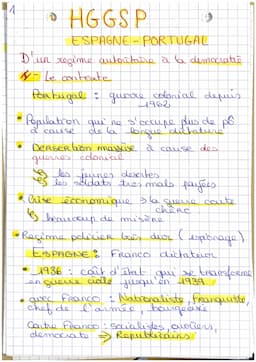 1
HGGSP
ESPAGNE - PORTUGAL
D'un régime autoritaire à la democratie
Le contexte
Portugal : guerre colonial depuis
1962
• Population qui ne s'occupe plus de p8
à cause de la longue dictature
• Desertion massive à cause des
guerres colonial
↳ les jeunes desertes
↳ les soldats tres mals payées
• Crise économique → la guerre coute
chère
↳ beaucoup de misère
• Régime policier très dur (espionage)
ESPAGNE : Franco dictateur
• 1936 : coût d'état qui se transforme
en guerre civile jusqu'en 1939
• avec Franco : Nationaliste, Franquiste,
chef de l'armée, bourgeoisie
Contre Franco : socialistes, ouvriers,
democrates → Republicains